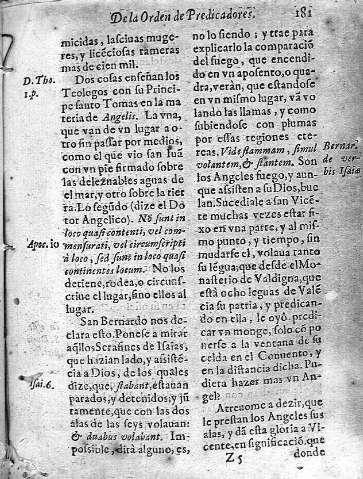 De la Orden de Predicadores.
181
micidas, lasciuas muge-
res, y licēciosas rameras
mas de cien mil.
D. Tho.
1. p.
Dos cosas enseñan los
Teologos con su Princi-
pe santo Tomas en la ma
teria de Angelis. La vna,
que van de vn lugar a o-
tro sin passar por medios,
como el que vio san Iuā
con vn pie firmado sobre
las deleznables aguas de
el mar, y otro sobre la tier
ra. Lo segūdo (dize el Do
tor Angelico) Nō sunt in
loco quasi contenti, vel com
mensurati, vel circumscripti
Apoc. 10
à loco, sed sunt in loco quasi
continentes locum. No los
detiene, rodea, o circuns-
criue el lugar, sino ellos al
lugar.
San Bernardo nos de-
clara esto. Ponese a mirar
aq̃llos Serafines de Isaias,
que hazian lado, y asistē-
cia a Dios, de los quales
Isai. 6.
dize, que, stabant, estauan
parados, y detenidos, y jū
tamente, que con las dos
alas de las seys volauan:
& duabus volabant. Im-
possible, dirà alguno, es,
no lo siendo; y trae para
explicarlo la comparaciō
del fuego, que encendi-
do en vn aposento, o qua
dra, veràn, que estandose
en vn mismo lugar, và vo
lando las llamas, y como
subiendose con plumas
por essas regiones ete-
reas, Vide flammam, simul
Bernar.
de ver-
bis Isaiæ
volantem, & stantem. Son
los Angeles fuego, y aun-
que assisten a su Dios, bue
lan. Sucediale a san Vicē-
te muchas vezes estar fi-
xo en vna parte, y al mis-
mo punto, y tiempo, sin
mudarse el, volaua tanto
su lēgua; que desde el Mo-
nasterio de Valdigna, que
està ocho leguas de Valē
cia su patria, y predican-
do en ella, le oyò predi-
car vn monge, solo cō po
nerse a la ventana de su
celda en el Conuento, y
en la distancia dicha. Pu-
diera hazer mas vn An-
gel?
Atreuome a dezir, que
le prestan los Angeles sus
alas, y dà esta gloria a Vi-
cente, en significaciō, que
Z 5
donde